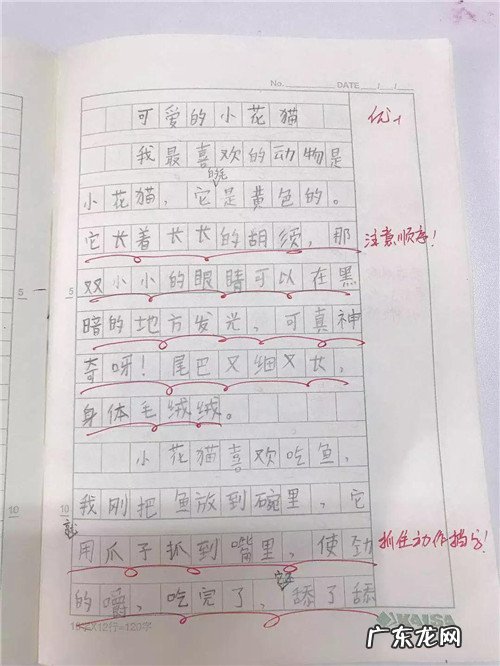 No. DATE / /
可爱的小花猫
优+
我最喜欢的动物是
的毛
小花猫，它是黄色的。
它长着长长的胡须，那
注意顺序！
双小小的眼睛可以在黑
5
5
暗的地方发光，可真神
奇呀！尾巴又细又长，
身体毛绒绒。
小花猫喜欢吃鱼，
我刚把鱼放到碗里，它
10
10
就
用爪子扒到嘴里，使劲
抓住动作描写！
的嚼，吃完了，舔了舔
10字X12行=120字
KAISA
广东龙网